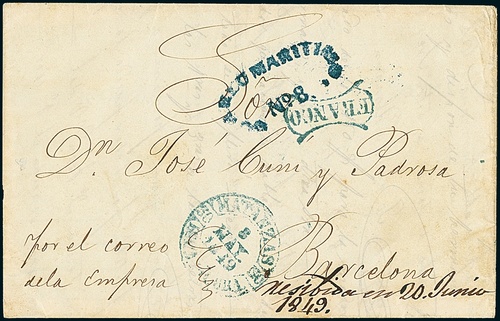 Sor
SELLO MARITIMO
Nº 8.
FRANCO
Dn. José Cuní y Padrosa
MATANZAS
8
MAY
49
por el correo
dela Empresa
Barcelona
recibida en 20 Junio
1849.